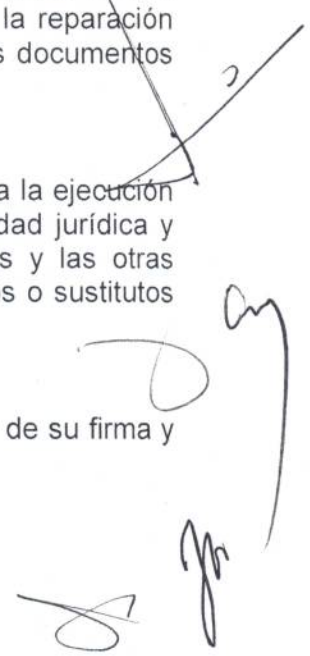 la reparación
s documentos
a la ejecución
dad jurídica y
s y las otras
os o sustitutos
de su firma y